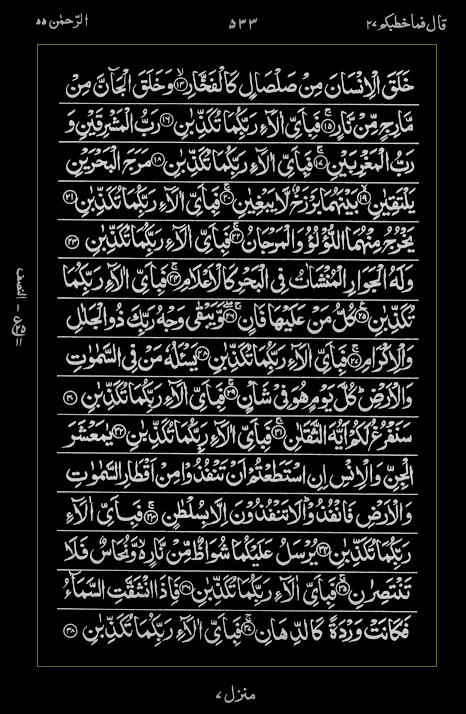 قال فما خطبكم ٢٧
٥٣٣
الرّحمٰن ٥٥
خَلَقَ الْاِنْسَانَ مِنْ صَلْصَالٍ كَالْفَخَّارِ ۙ﴿١٤﴾ وَخَلَقَ الْجَآنَّ مِنْ
مَّارِجٍ مِّنْ نَّارٍ ۚ﴿١٥﴾ فَبِاَىِّ اٰلَآءِ رَبِّكُمَا تُكَذِّبٰنِ ﴿١٦﴾ رَبُّ الْمَشْرِقَيْنِ وَ
رَبُّ الْمَغْرِبَيْنِ ۚ﴿١٧﴾ فَبِاَىِّ اٰلَآءِ رَبِّكُمَا تُكَذِّبٰنِ ﴿١٨﴾ مَرَجَ الْبَحْرَيْنِ
يَلْتَقِيٰنِ ۙ﴿١٩﴾ بَيْنَهُمَا بَرْزَخٌ لَّا يَبْغِيٰنِ ۚ﴿٢٠﴾ فَبِاَىِّ اٰلَآءِ رَبِّكُمَا تُكَذِّبٰنِ ﴿٢١﴾
يَخْرُجُ مِنْهُمَا اللُّؤْلُؤُ وَالْمَرْجَانُ ۚ﴿٢٢﴾ فَبِاَىِّ اٰلَآءِ رَبِّكُمَا تُكَذِّبٰنِ ﴿٢٣﴾
وَلَهُ الْجَوَارِ الْمُنْشَئٰتُ فِى الْبَحْرِ كَالْاَعْلَامِ ۚ﴿٢٤﴾ فَبِاَىِّ اٰلَآءِ رَبِّكُمَا
تُكَذِّبٰنِ ﴿٢٥﴾ كُلُّ مَنْ عَلَيْهَا فَانٍ ۖۚ﴿٢٦﴾ وَّيَبْقٰى وَجْهُ رَبِّكَ ذُو الْجَلٰلِ
وَالْاِكْرَامِ ۚ﴿٢٧﴾ فَبِاَىِّ اٰلَآءِ رَبِّكُمَا تُكَذِّبٰنِ ﴿٢٨﴾ يَسْئَلُهٗ مَنْ فِى السَّمٰوٰتِ
وَالْاَرْضِ ؕ كُلَّ يَوْمٍ هُوَ فِىْ شَاْنٍ ۚ﴿٢٩﴾ فَبِاَىِّ اٰلَآءِ رَبِّكُمَا تُكَذِّبٰنِ ﴿٣٠﴾
سَنَفْرُغُ لَكُمْ اَيُّهَ الثَّقَلٰنِ ۚ﴿٣١﴾ فَبِاَىِّ اٰلَآءِ رَبِّكُمَا تُكَذِّبٰنِ ﴿٣٢﴾ يٰمَعْشَرَ
الْجِنِّ وَالْاِنْسِ اِنِ اسْتَطَعْتُمْ اَنْ تَنْفُذُوْا مِنْ اَقْطَارِ السَّمٰوٰتِ
وَالْاَرْضِ فَانْفُذُوْا ؕ لَا تَنْفُذُوْنَ اِلَّا بِسُلْطٰنٍ ۚ﴿٣٣﴾ فَبِاَىِّ اٰلَآءِ
رَبِّكُمَا تُكَذِّبٰنِ ﴿٣٤﴾ يُرْسَلُ عَلَيْكُمَا شُوَاظٌ مِّنْ نَّارٍ ۙ وَّنُحَاسٌ فَلَا
تَنْتَصِرٰنِ ۚ﴿٣٥﴾ فَبِاَىِّ اٰلَآءِ رَبِّكُمَا تُكَذِّبٰنِ ﴿٣٦﴾ فَاِذَا انْشَقَّتِ السَّمَآءُ
فَكَانَتْ وَرْدَةً كَالدِّهَانِ ۚ﴿٣٧﴾ فَبِاَىِّ اٰلَآءِ رَبِّكُمَا تُكَذِّبٰنِ ﴿٣٨﴾
النصف
ع
١١
منزل ٧